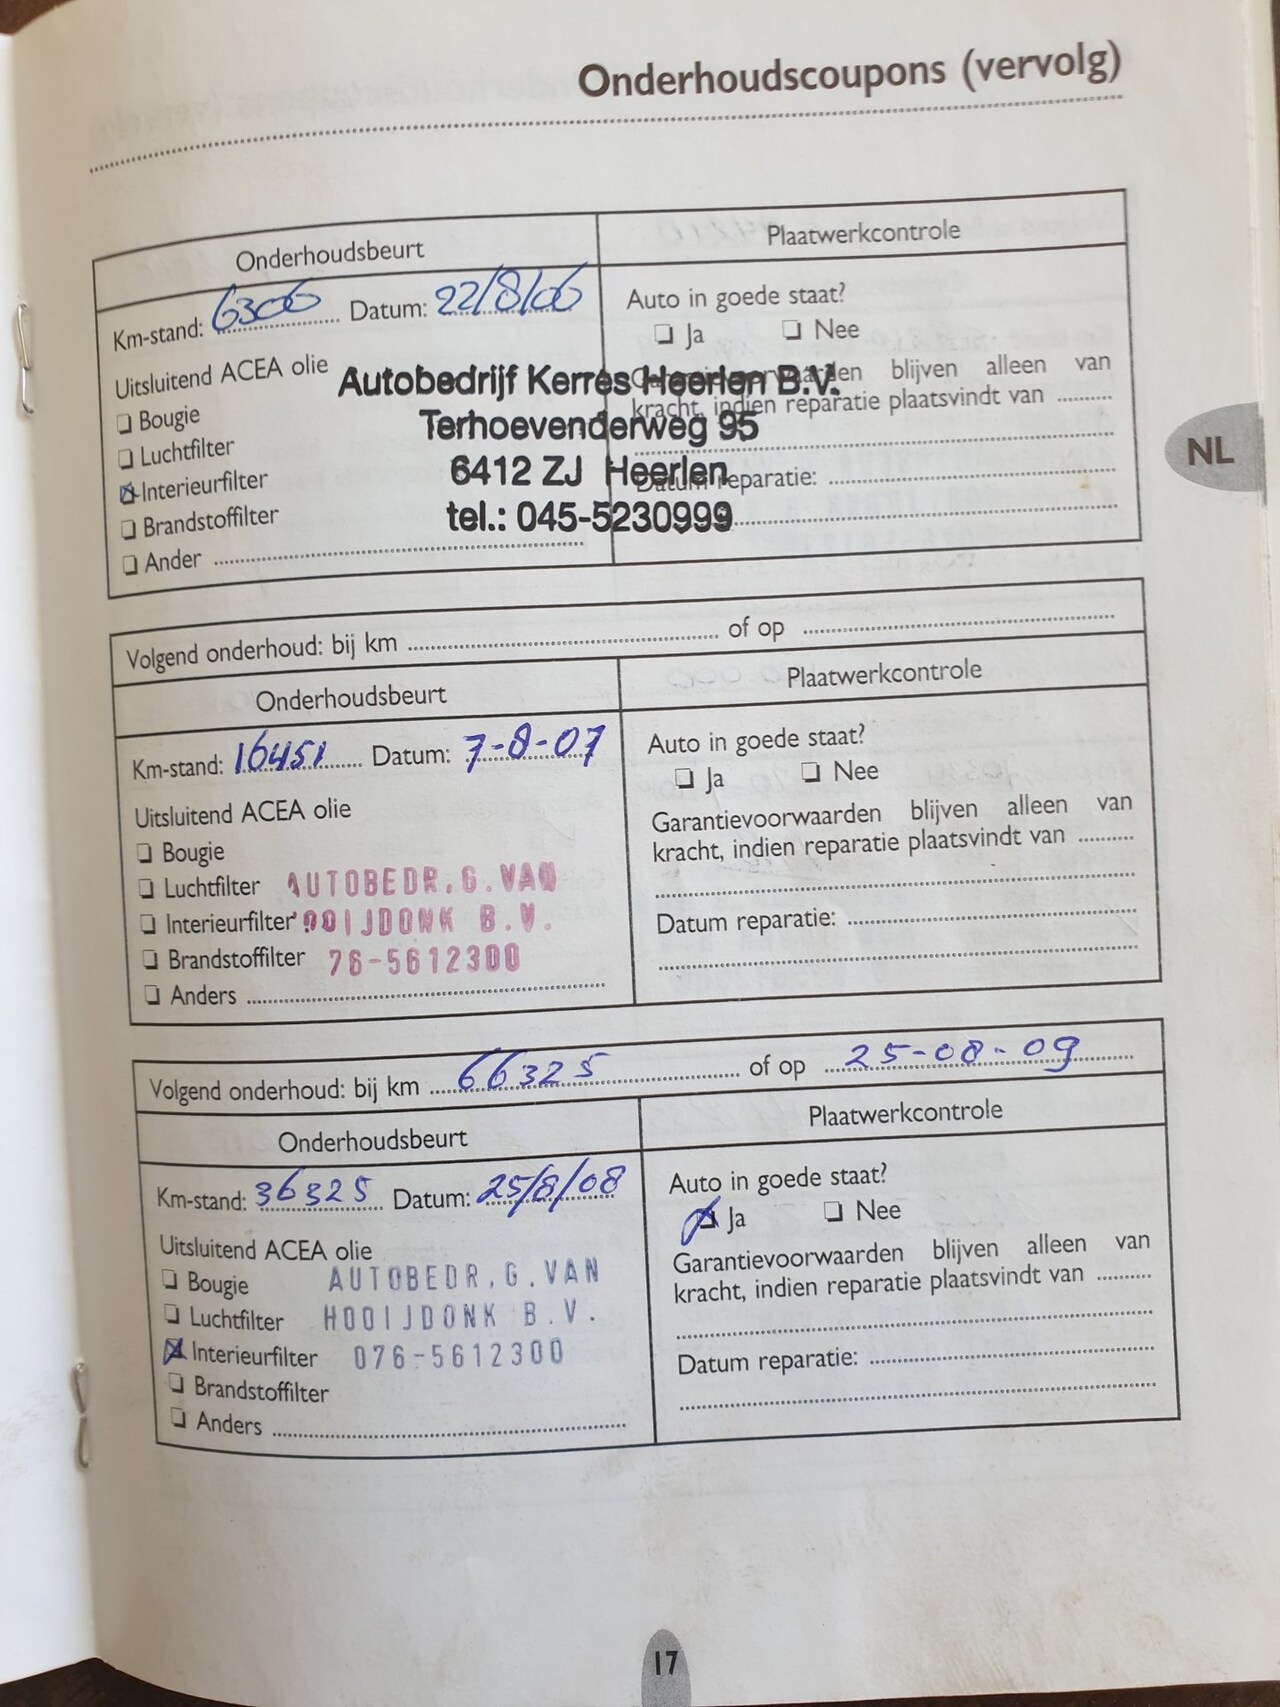 Onderhoudscoupons (vervolg)
Onderhoudsbeurt
Plaatwerkcontrole
Km-stand: 6306 Datum: 22/8/06
Auto in goede staat?
❏ Ja ❏ Nee
Uitsluitend ACEA olie
❏ Bougie
❏ Luchtfilter
☒ Interieurfilter
❏ Brandstoffilter
❏ Ander
Autobedrijf Kerres Heerlen B.V.
Terhoevenderweg 95
6412 ZJ Heerlen
tel.: 045-5230999
blijven alleen van
kracht, indien reparatie plaatsvindt van
Datum reparatie:
NL
Volgend onderhoud: bij km of op
Onderhoudsbeurt
Plaatwerkcontrole
Km-stand: 16451 Datum: 7-8-07
Auto in goede staat?
❏ Ja ❏ Nee
Uitsluitend ACEA olie
❏ Bougie
❏ Luchtfilter
❏ Interieurfilter
❏ Brandstoffilter
❏ Anders
AUTOBEDR.G.VAN
OOIJDONK B.V.
76-5612300
Garantievoorwaarden blijven alleen van
kracht, indien reparatie plaatsvindt van
Datum reparatie:
Volgend onderhoud: bij km 66325 of op 25-08-09
Onderhoudsbeurt
Plaatwerkcontrole
Km-stand: 36325 Datum: 25/8/08
Auto in goede staat?
☒ Ja ❏ Nee
Uitsluitend ACEA olie
❏ Bougie
❏ Luchtfilter
☒ Interieurfilter
❏ Brandstoffilter
❏ Anders
AUTOBEDR.G.VAN
HOOIJDONK B.V.
076-5612300
Garantievoorwaarden blijven alleen van
kracht, indien reparatie plaatsvindt van
Datum reparatie:
17